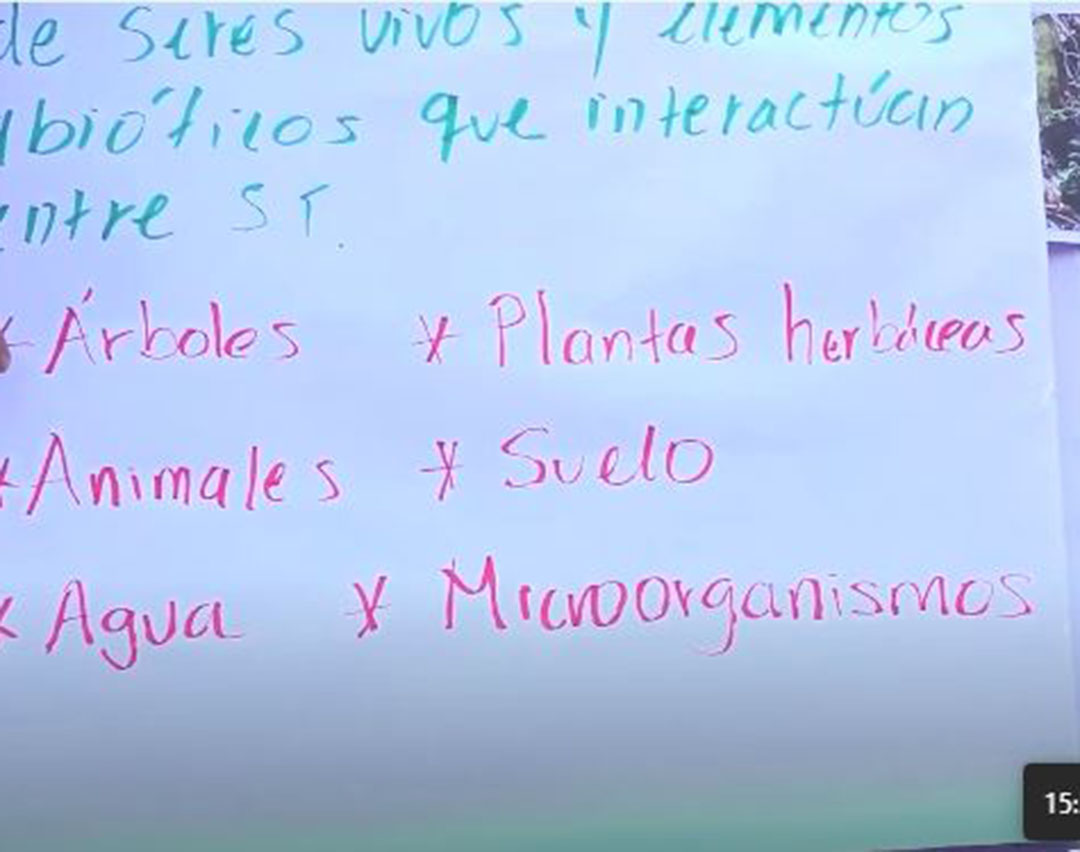 de seres vivos y elementos
abióticos que interactúan
entre sí.
* Árboles * Plantas herbáceas
* Animales * Suelo
* Agua * Microorganismos
15: